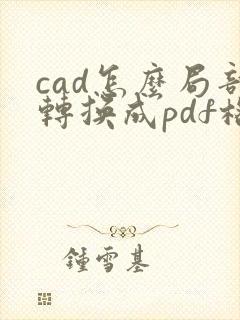 cad怎麼局部
轉換成pdf格
鍾雪基